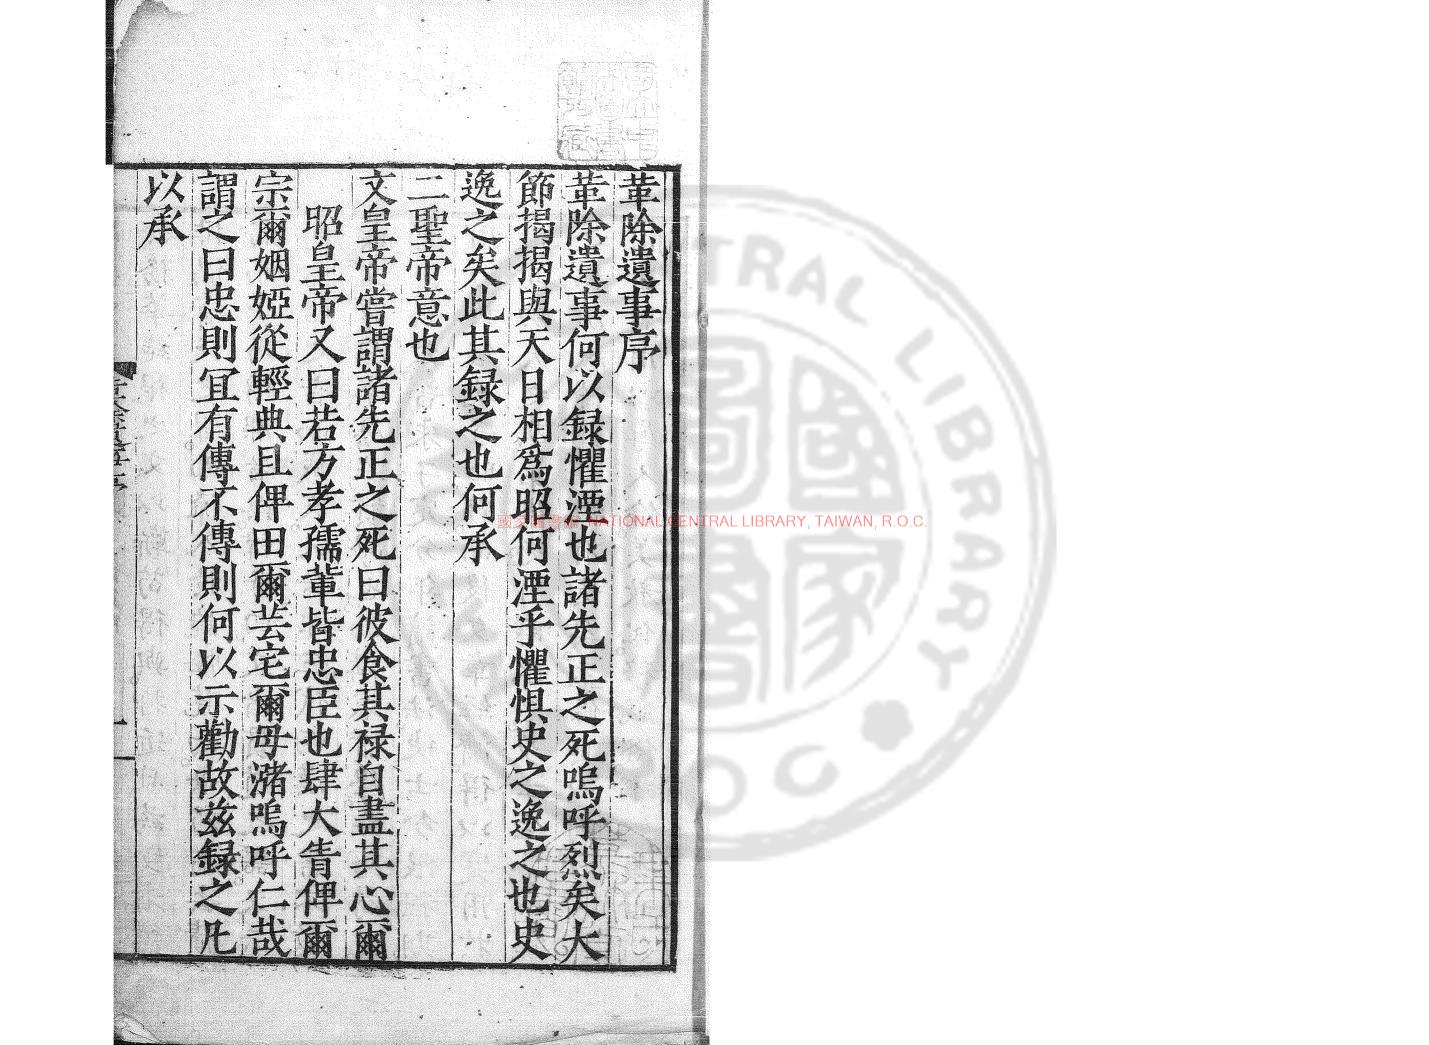 革除遺事序
革除遺事何以録懼湮也諸先正之死嗚呼烈矣大
節揭揭與天日相爲昭何湮乎懼惧史之逸之也史
逸之矣此其録之也何承
二聖帝意也
文皇帝嘗謂諸先正之死曰彼食其禄自盡其心爾
昭皇帝又曰若方孝孺輩皆忠臣也肆大眚俾爾
宗爾姻婭從輕典且俾田爾芸宅爾毋瀦嗚呼仁哉
謂之曰忠則冝有傳不傳則何以示勸故兹録之凡
以承
國家圖書館 NATIONAL CENTRAL LIBRARY, TAIWAN, R.O.C.